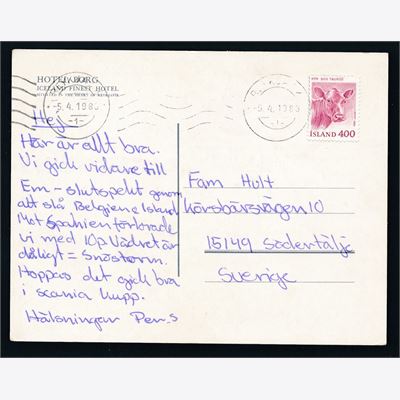 HOTEL BORG
ICELAND FINEST HOTEL
5.4.1983
-1-
-5.4.1983
-1-
KÝR BOS TAURUS
ÍSLAND 400
Hej
Här är allt bra.
Vi gick vidare till
Em-slutspekt genom
att slå Belgien o Island
Mot Spanien förlorade
vi med 10p. Vädret är
dåligt = Snöstorm.
Hoppas det gick bra
i scania kupp.
Hälsningar Per.S
Fam Hult
Körsbärsvägen 10
15149 Södertälje
Sverige